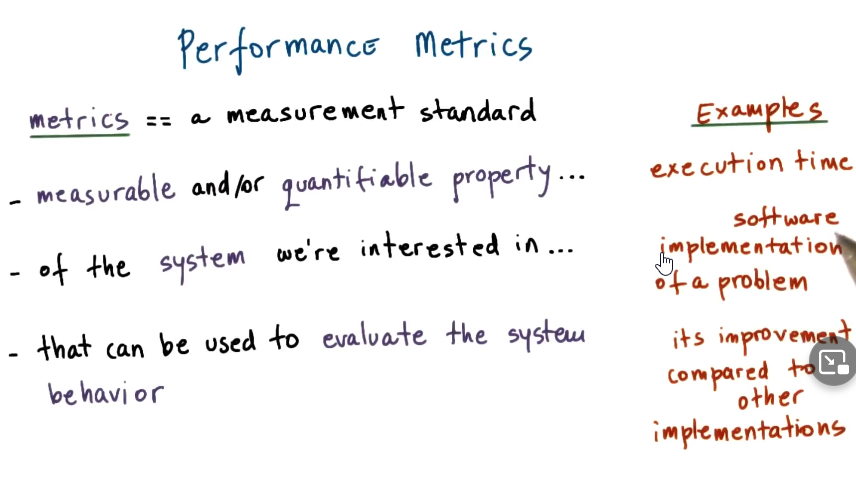 Performance Metrics
metrics == a measurement standard
- measurable and/or quantifiable property...
- of the system we're interested in...
- that can be used to evaluate the system
behavior
Examples
execution time
software
implementation
of a problem
its improvement
compared to
other
implementations